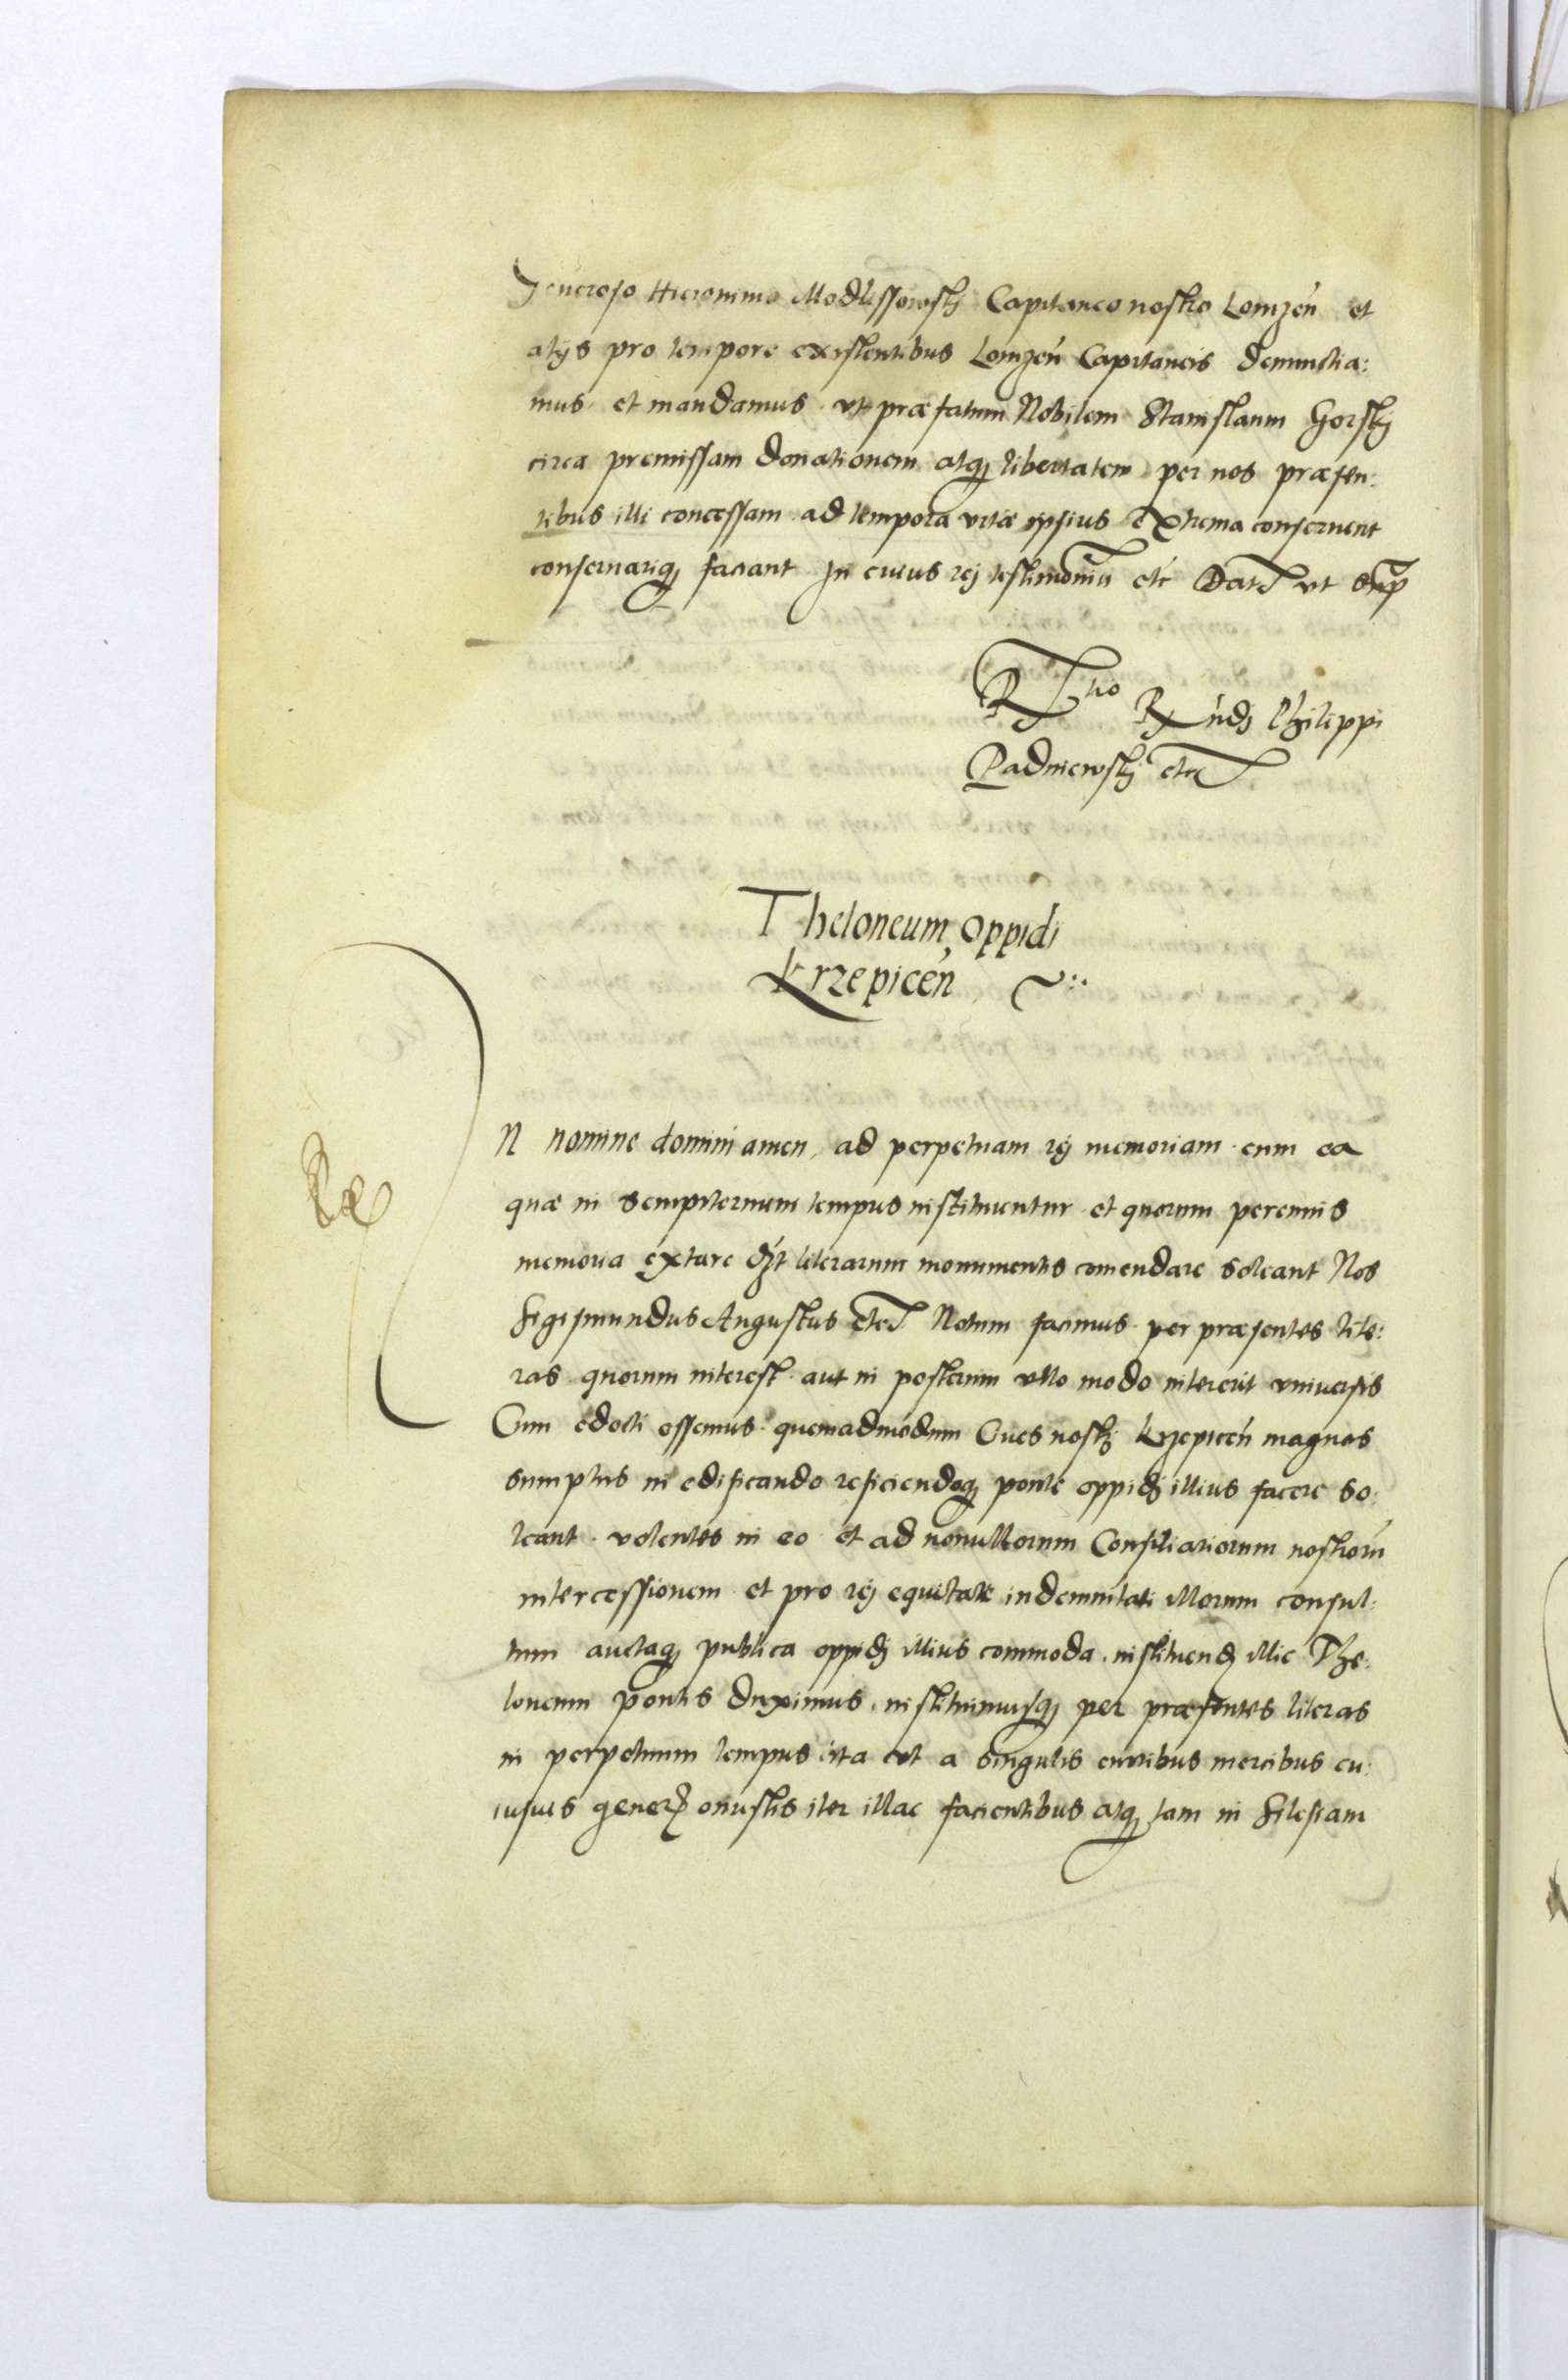 Generoso Hieronimo Modlissowskj Capitaneo nostro Lomzeń et
alijs pro tempore existentibus Lomzeń Capitaneis denunctia:
mus et mandamus vt præfatum Nobilem Stanislaum Gorskj
circa premissam donationem atq; libertatem per nos præsen:
tibus illi concessam ad tempora vitæ ipsius extrema conseruent
conseruariq; faciant In cuius rej testimoniū etc Dat vt sup
R tio Rndj Philippi
Padniewskj etc
Theloneum oppidi
Krzepiceń
N nomine domini amen, ad perpetuam rej memoriam cum ea
quæ in sempiternum tempus instituentur et quorum perennis
memoria extare dzt literarum monumentis comendare soleant Nos
Sigismundus Augustus etc Notum facimus per præsentes lite:
ras quorum interest aut in posterum vllo modo intererit vniuersis
Cum edocti essemus quemadmodum Ciues nostrj Krzepiceń magnos
sumptus in edificando reficiendoq; ponte oppidj illius facere so:
leant volentes in eo et ad nonullorum Consiliariorum nostrorū
intercessionem et pro rej equitate indemnitati illorum consul:
tum auctaq; publica oppidj illius commoda instituend illic The:
loneum pontis duximus instituimusq; per præsentes literas
in perpetuum tempus ita vt a singulis curribus mercibus cu:
iusuis gener onustis iter illac facientibus atq; tam in Silesiam